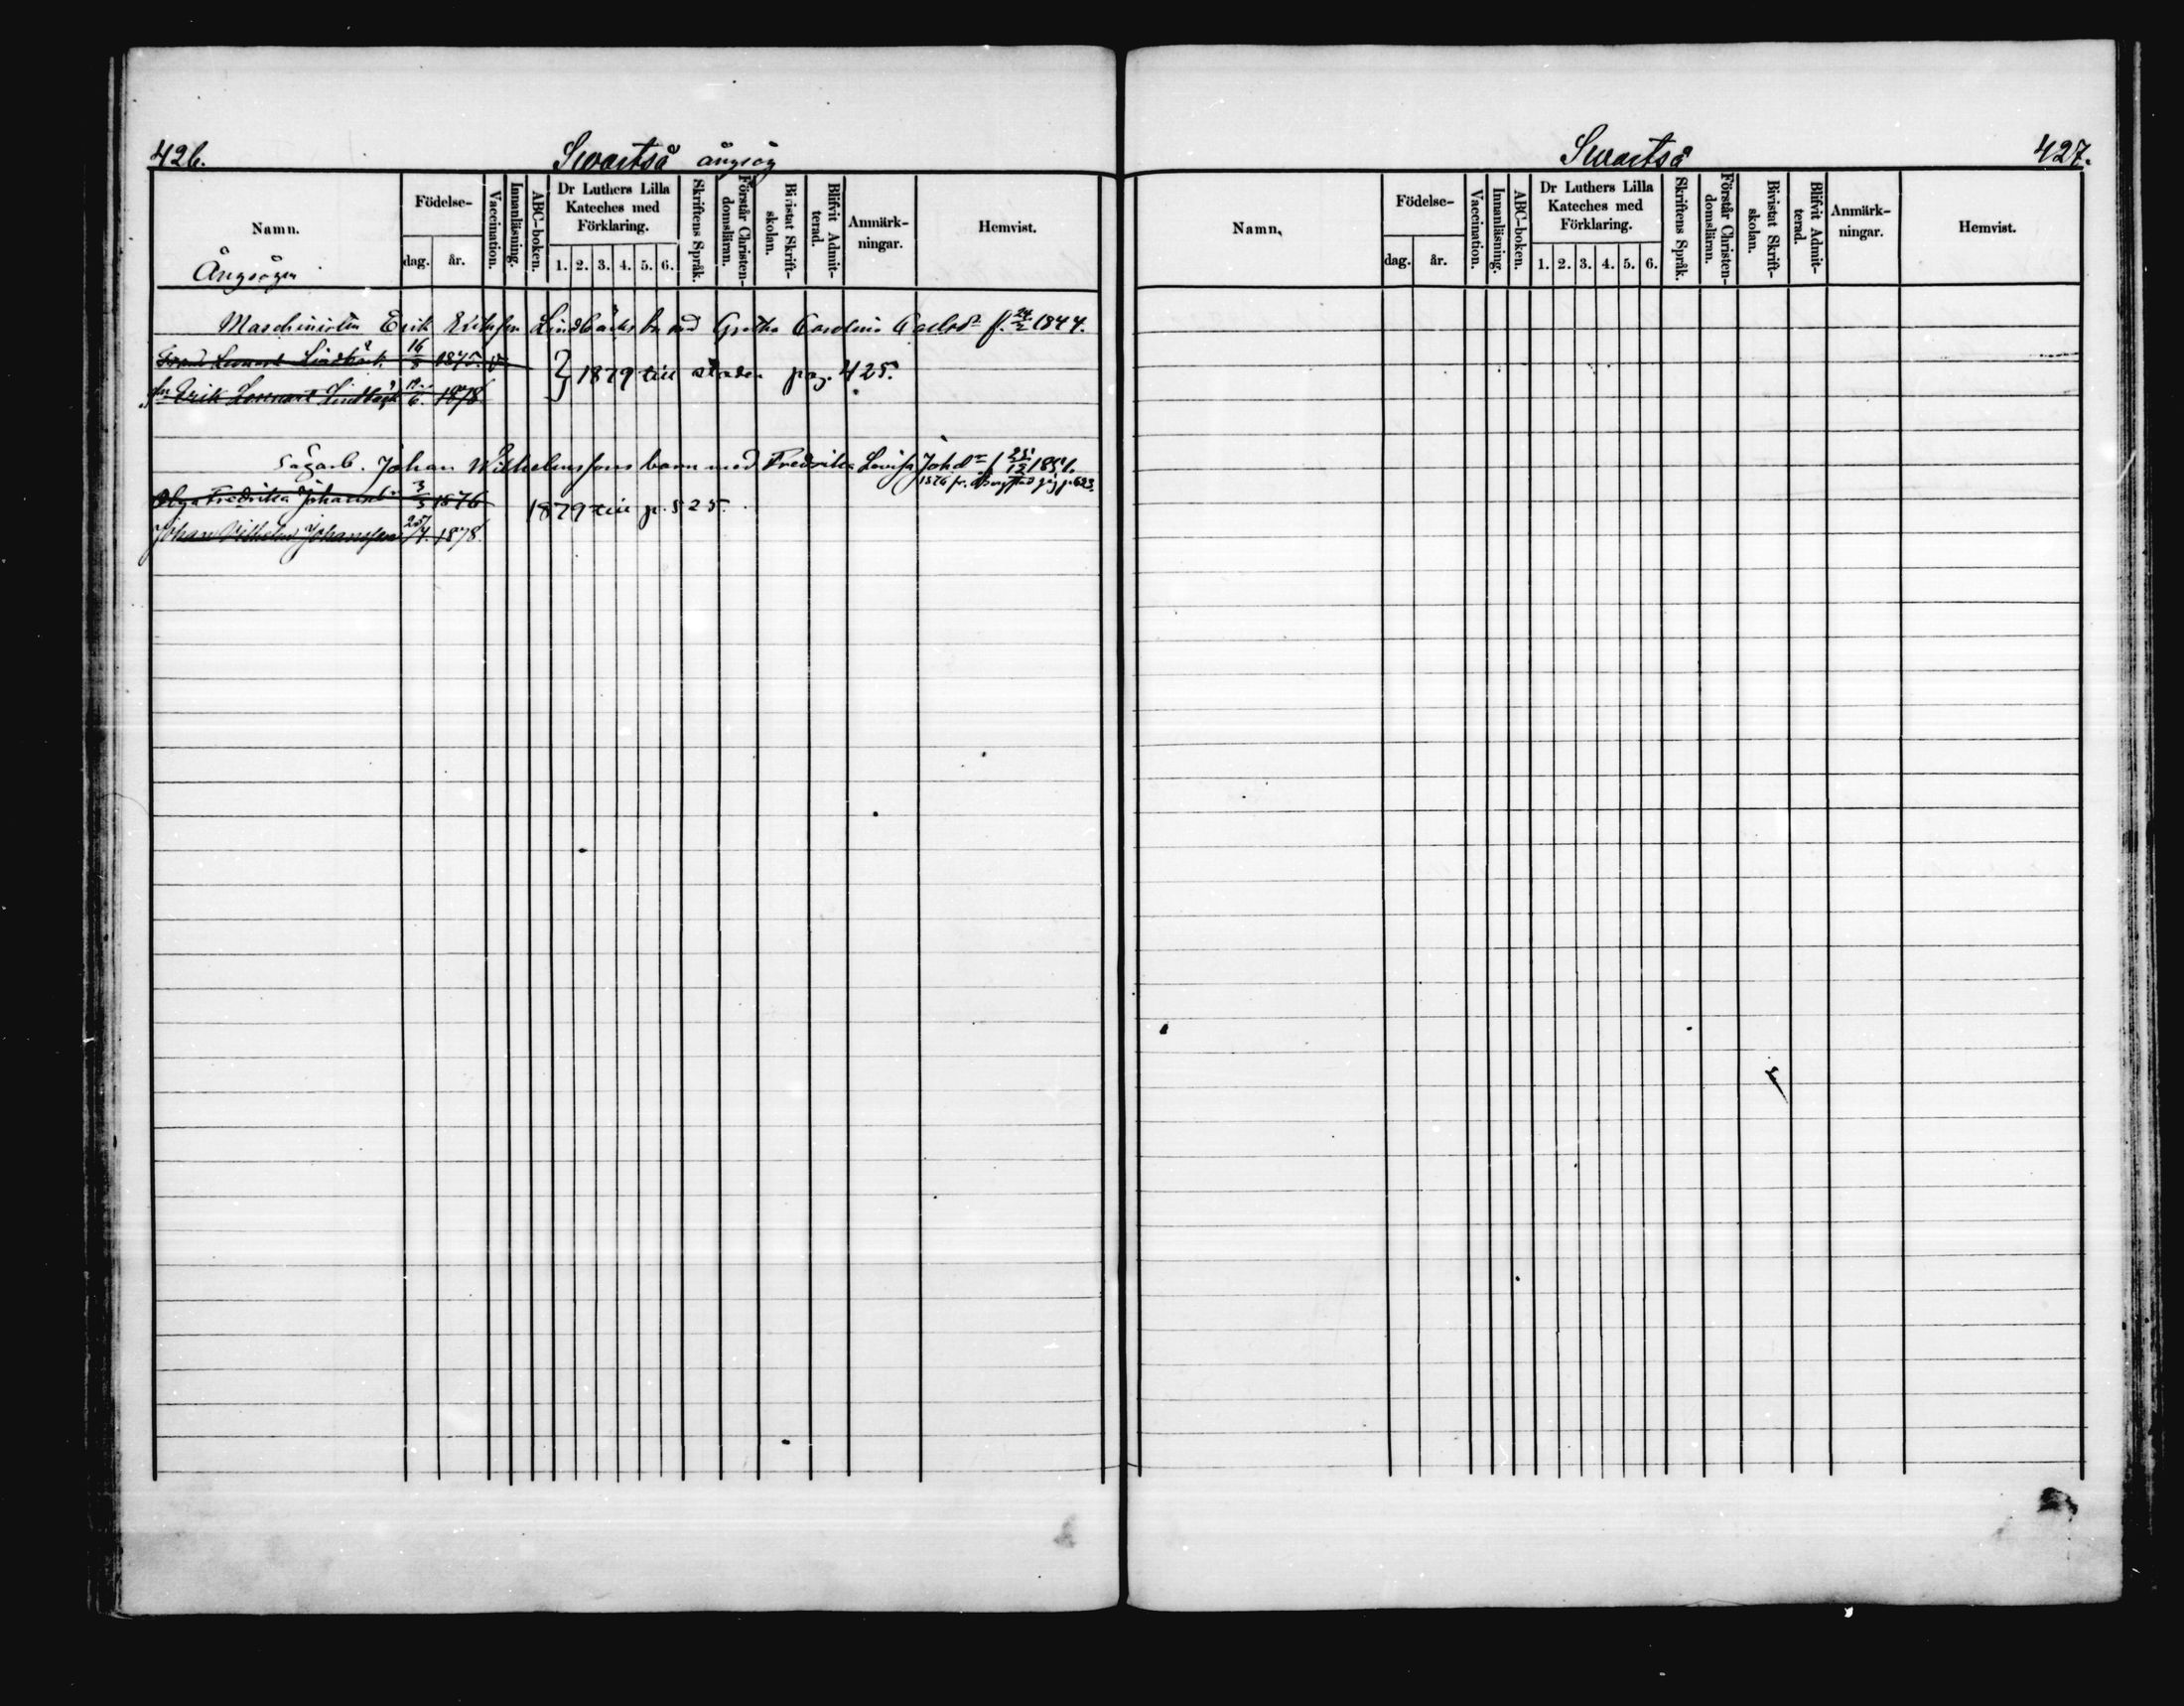 426.
Swartså ångsåg
Namn.
Födelse-
dag.
år.
Vaccination.
Innanläsning.
ABC-boken.
Dr Luthers Lilla
Kateches med
Förklaring.
1. 2. 3. 4. 5. 6.
Skriftens Språk.
Förstår Christen-
domsläran.
Bivistat Skrift-
skolan.
Blifvit Admit-
terad.
Anmärk-
ningar.
Hemvist.
Ångsågen
Maschinisten Erik Eriksson Lindbäcks bn med Gretha Carolina Carlsdr f. 24/2 1844.
Frans Leonard Lindbäck 16/8 1875. v
} 1879 till staden pag. 425.
Erik Leonard Lindbäck 6. 1878.
Sågarb. Johan Wilhelmssons barn med Fredrika Lovisa Johdr f 25/12 1851.
1876 fr. p. 623.
Olga Fredrika Johansdr 3/3 1876
1879 till p. 525.
Johan Vilhelm Johansson 25/4. 1878.
Swartså
427.
Namn,
Födelse-
dag.
år.
Vaccination.
Innanläsning.
ABC-boken.
Dr Luthers Lilla
Kateches med
Förklaring.
1. 2. 3. 4. 5. 6.
Skriftens Språk.
Förstår Christen-
domsläran.
Bivistat Skrift-
skolan.
Blifvit Admit-
terad.
Anmärk-
ningar.
Hemvist.